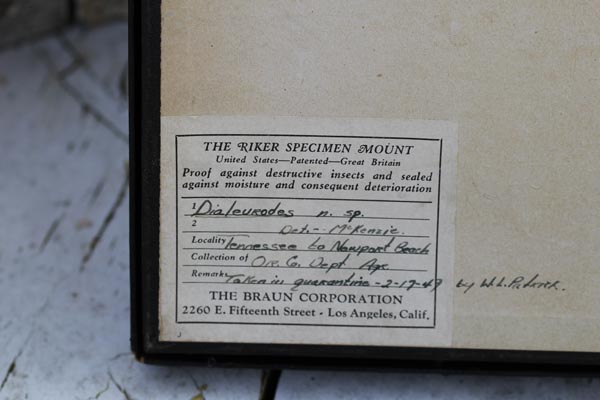 THE RIKER SPECIMEN MOUNT
United States—Patented—Great Britain
Proof against destructive insects and sealed
against moisture and consequent deterioration
1 Dialeurodes n. sp.
2 Det.- McKenzie.
Locality Tennessee to Newport Beach
Collection of Or. Co. Dept Agr.
Remarks Taken in quarantine - 2-17-49 by W.L.
THE BRAUN CORPORATION
2260 E. Fifteenth Street - Los Angeles, Calif.